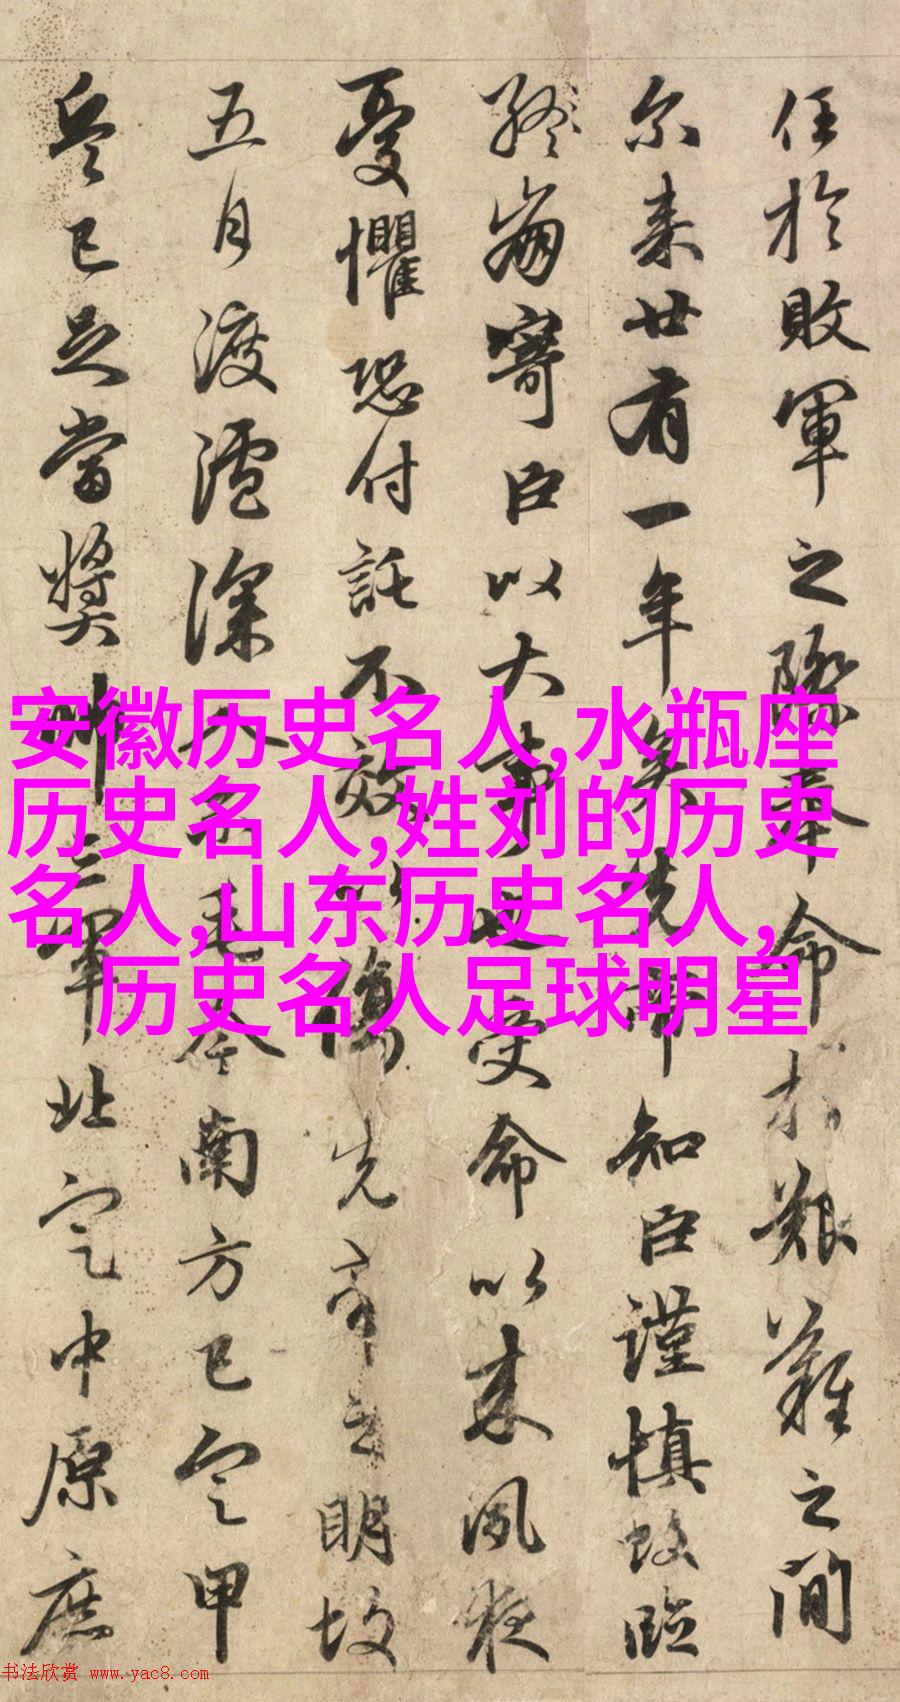 任於敗軍之際奉命於艱難之間
尔来廿有一年矣先帝知臣謹慎故臨
終崩寄臣以大事也受命以来夙夜
憂懼恐付託不效以傷先帝之明故
五月渡瀘深入不毛今南方已定甲
兵已足當獎帥三軍北定中原庶
安徽历史名人,水瓶座
历史名人,姓刘的历史
名人,山东历史名人,
历史名人足球明星
书法欣赏 www.yac8.com